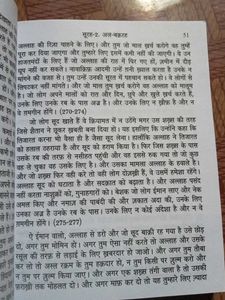 सूरह-2. अल-बक़रह 51
अल्लाह की रिज़ा चाहने के लिए। और तुम जो माल ख़र्च करोगे वह तुम्हें
पूरा कर दिया जाएगा और तुम्हारे लिए इसमें कमी नहीं की जाएगी। ये उन
हाजतमंदों के लिए हैं जो अल्लाह की राह में घिर गए हों, ज़मीन में दौड़
धूप नहीं कर सकते। नावाक़िफ़ आदमी उन्हें ग़नी ख़्याल करता है उनके न
मांगने की वजह से। तुम उन्हें उनकी सूरत से पहचान सकते हो। वे लोगों से
लिपटकर नहीं मांगते। और जो माल तुम ख़र्च करोगे वह अल्लाह को मालूम
है। जो लोग अपने मालों को रात और दिन, छुपे और खुले ख़र्च करते हैं,
उनके लिए उनके रब के पास अज्र है। और उनके लिए न ख़ौफ़ है और न
वे ग़मगीन होंगे। (270-274)
जो लोग सूद खाते हैं वे क़ियामत में न उठेंगे मगर उस शख़्स की तरह
जिसे शैतान ने छूकर ख़बती बना दिया हो। यह इसलिए कि उन्होंने कहा कि
तिजारत करना भी वैसा ही है जैसा सूद लेना। हालांकि अल्लाह ने तिजारत
को हलाल ठहराया है और सूद को हराम किया है। फिर जिस शख़्स के पास
उसके रब की तरफ़ से नसीहत पहुंची और वह इससे रुक गया तो जो कुछ
वह ले चुका वह उसके लिए है। और उसका मामला अल्लाह के हवाले है।
और जो शख़्स फिर वही करे तो वही लोग दोज़ख़ी हैं, वे उसमें हमेशा रहेंगे।
अल्लाह सूद को घटाता है और सदक़ात को बढ़ाता है। और अल्लाह पसंद
नहीं करता नाशुक्रों को, गुनाहगारों को। बेशक जो लोग ईमान लाए और नेक
अमल किए और नमाज़ की पाबंदी की और ज़कात अदा की, उनके लिए
उनका अज्र है उनके रब के पास। उनके लिए न कोई अंदेशा है और न वे
ग़मगीन होंगे। (275-277)
ऐ ईमान वालो, अल्लाह से डरो और जो सूद बाक़ी रह गया है उसे छोड़
दो, अगर तुम मोमिन हो। अगर तुम ऐसा नहीं करते तो अल्लाह और उसके
रसूल की तरफ़ से लड़ाई के लिए ख़बरदार हो जाओ। और अगर तुम तौबा
कर लो तो अस्ल रक़म के तुम हक़दार हो, न तुम किसी पर ज़ुल्म करो और
न तुम पर ज़ुल्म किया जाए। और अगर एक शख़्स तंगी वाला है तो उसकी
फ़राख़ी तक मोहलत दो। और अगर माफ़ कर दो तो यह तुम्हारे लिए ज़्यादा